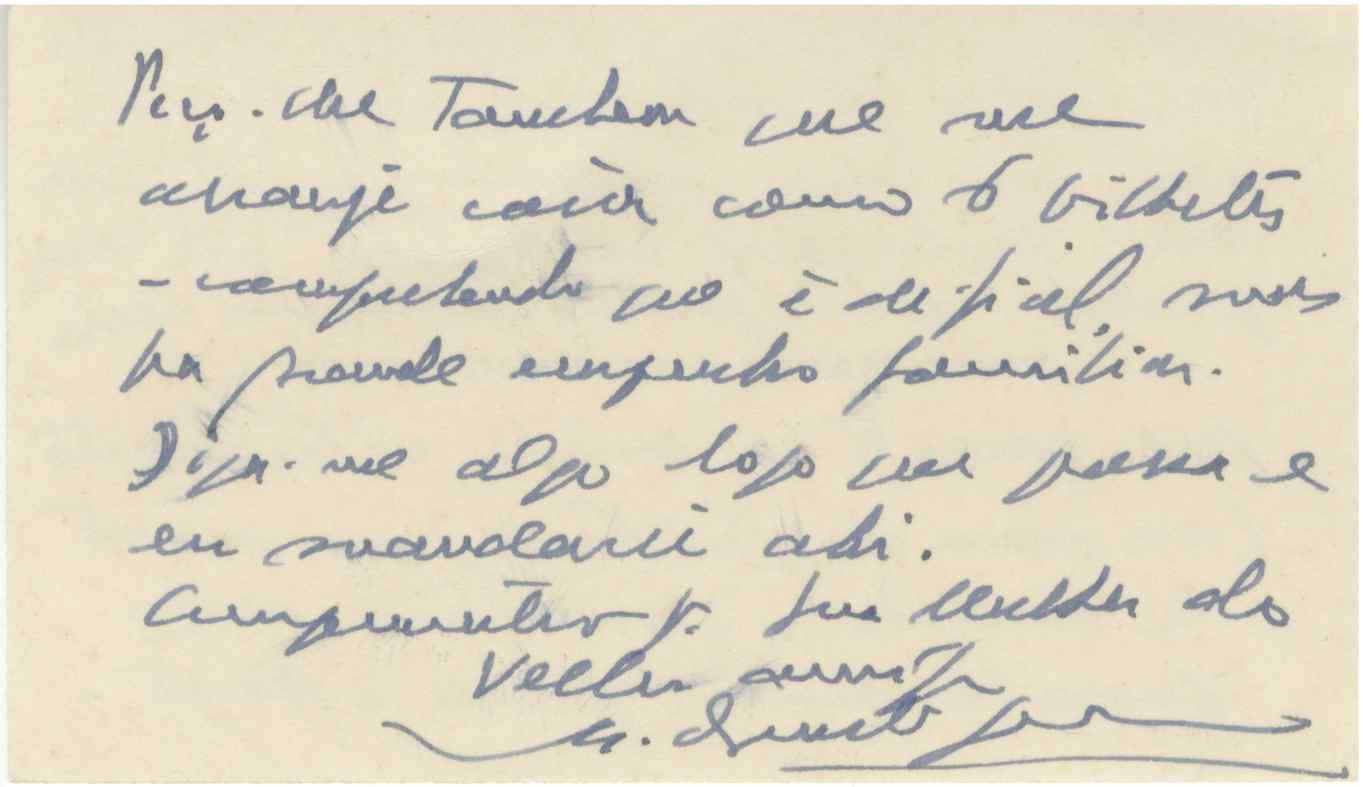 Peço-lhe Tambem que me
arranje coisa como 6 bilhetes
- comprehendo que é dificil, mas
ha grande empenho familiar.
Diga-me algo logo que possa e
eu mandarei ahi.
Cumprimentos p. sua mulher do
Velho amigo